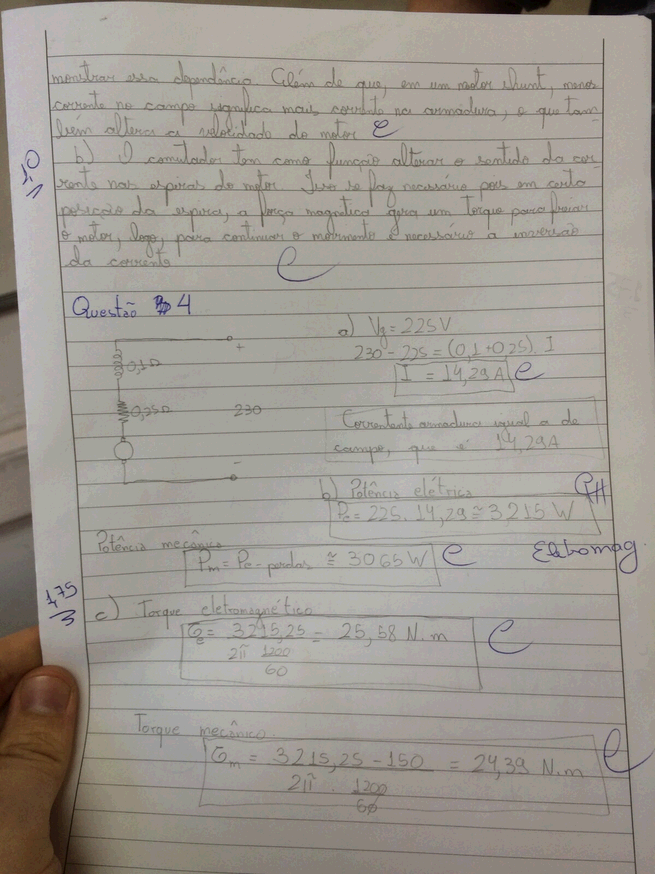 monstrar essa dependência. Além de que, em um motor shunt, menos
corrente no campo significa mais corrente na armadura, o que tam
bém altera a velocidade do motor C
1,0
b) O comutador tem como função alterar o sentido da cor
rente nas espiras do motor. Isso se faz necessário pois em certa
posição da espira, a força magnética gera um torque para frear
o motor, logo, para continuar o movimento é necessário a inversão
da corrente. C
Questão 4
a) Vg = 225V
230 - 225 = (0,1 + 0,25). I
I = 14,29A C
0,1Ω
+
0,25Ω
230
-
Corrente armadura igual a de
campo, que é 14,29A
b) Potência elétrica
Pe = 225. 14,29 ≅ 3215 W
Potência mecânica
Pm = Pe - perdas ≅ 3065 W C
Eletromag.
1,75
3
c) Torque eletromagnético
τe = 3215,25 = 25,58 N.m C
2π 1200
60
Torque mecânico
τm = 3215,25 - 150 = 24,39 N.m C
2π . 1200
60